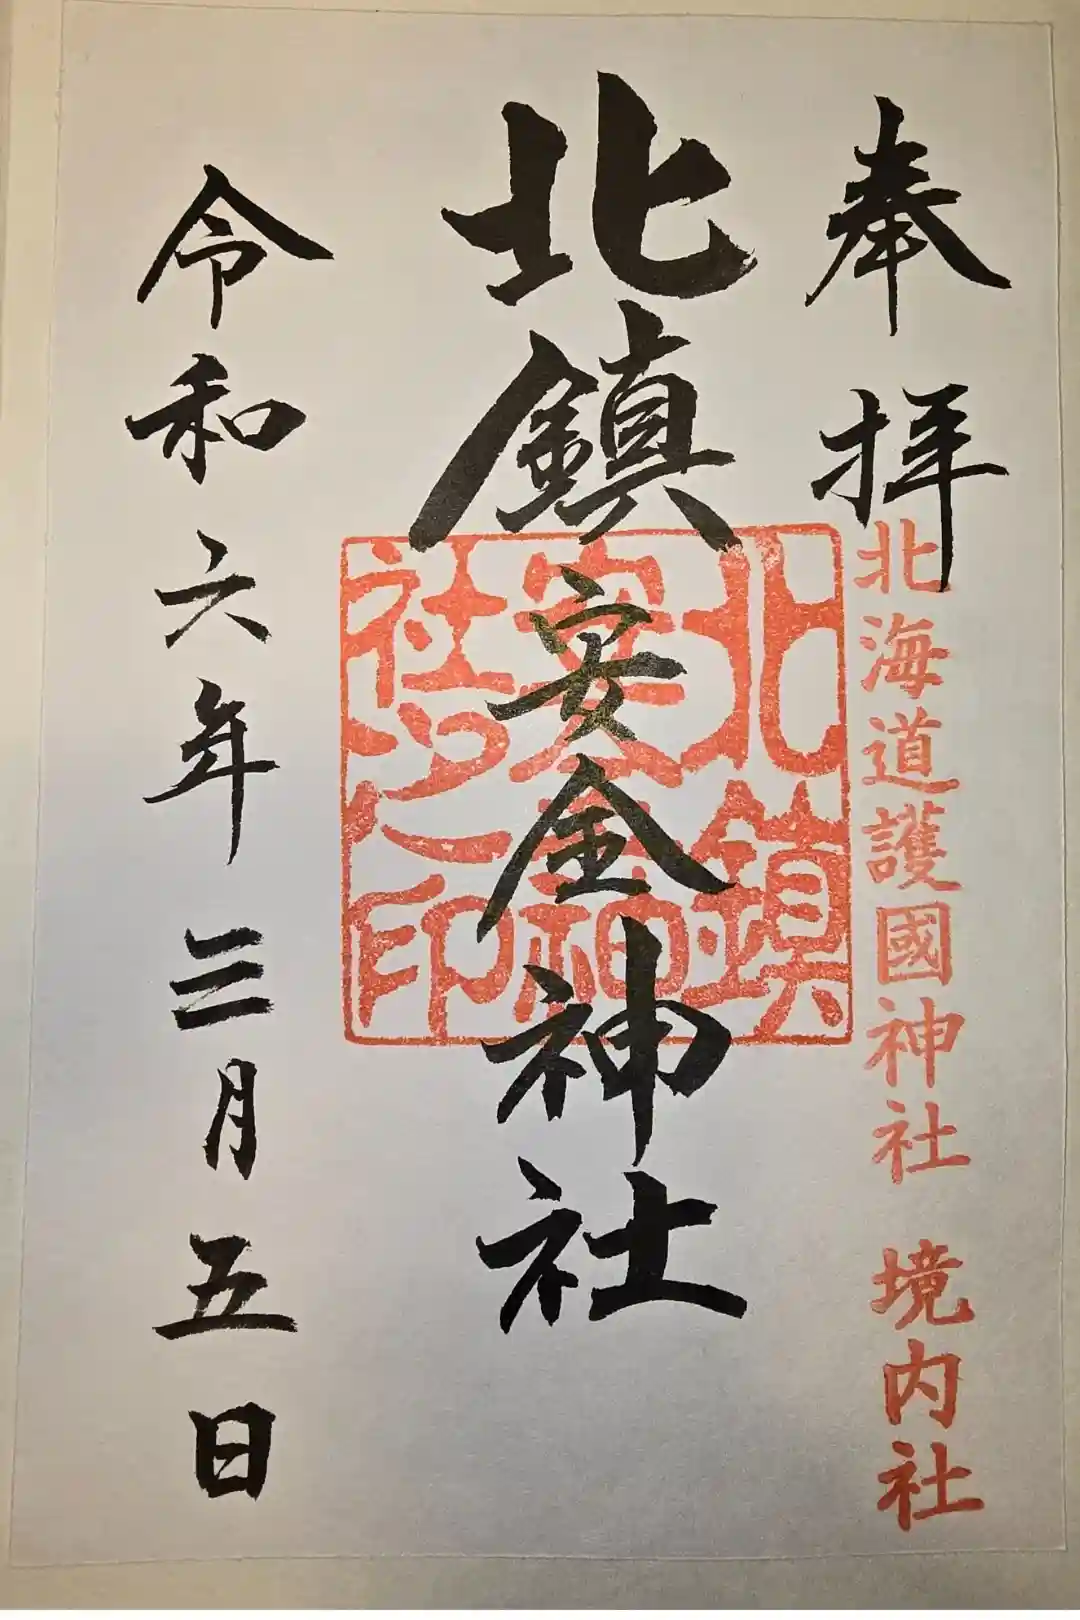 奉拝
北海道護國神社 境内社
北鎮安全神社
北鎮
安全神
社之印
令和六年三月五日